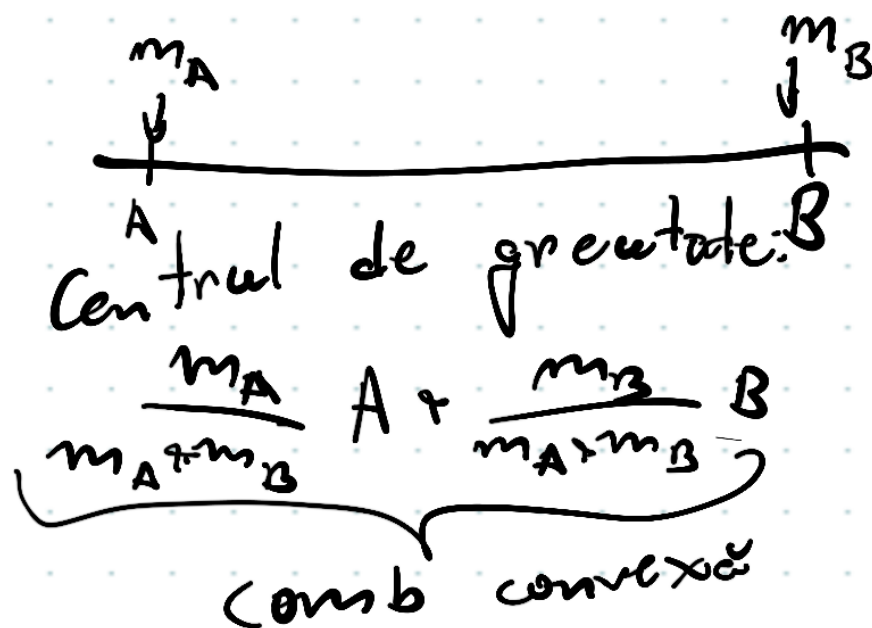 m_A m_B
A B
Centrul de greutate:
\frac{m_A}{m_A+m_B} A + \frac{m_B}{m_A+m_B} B
comb convexă